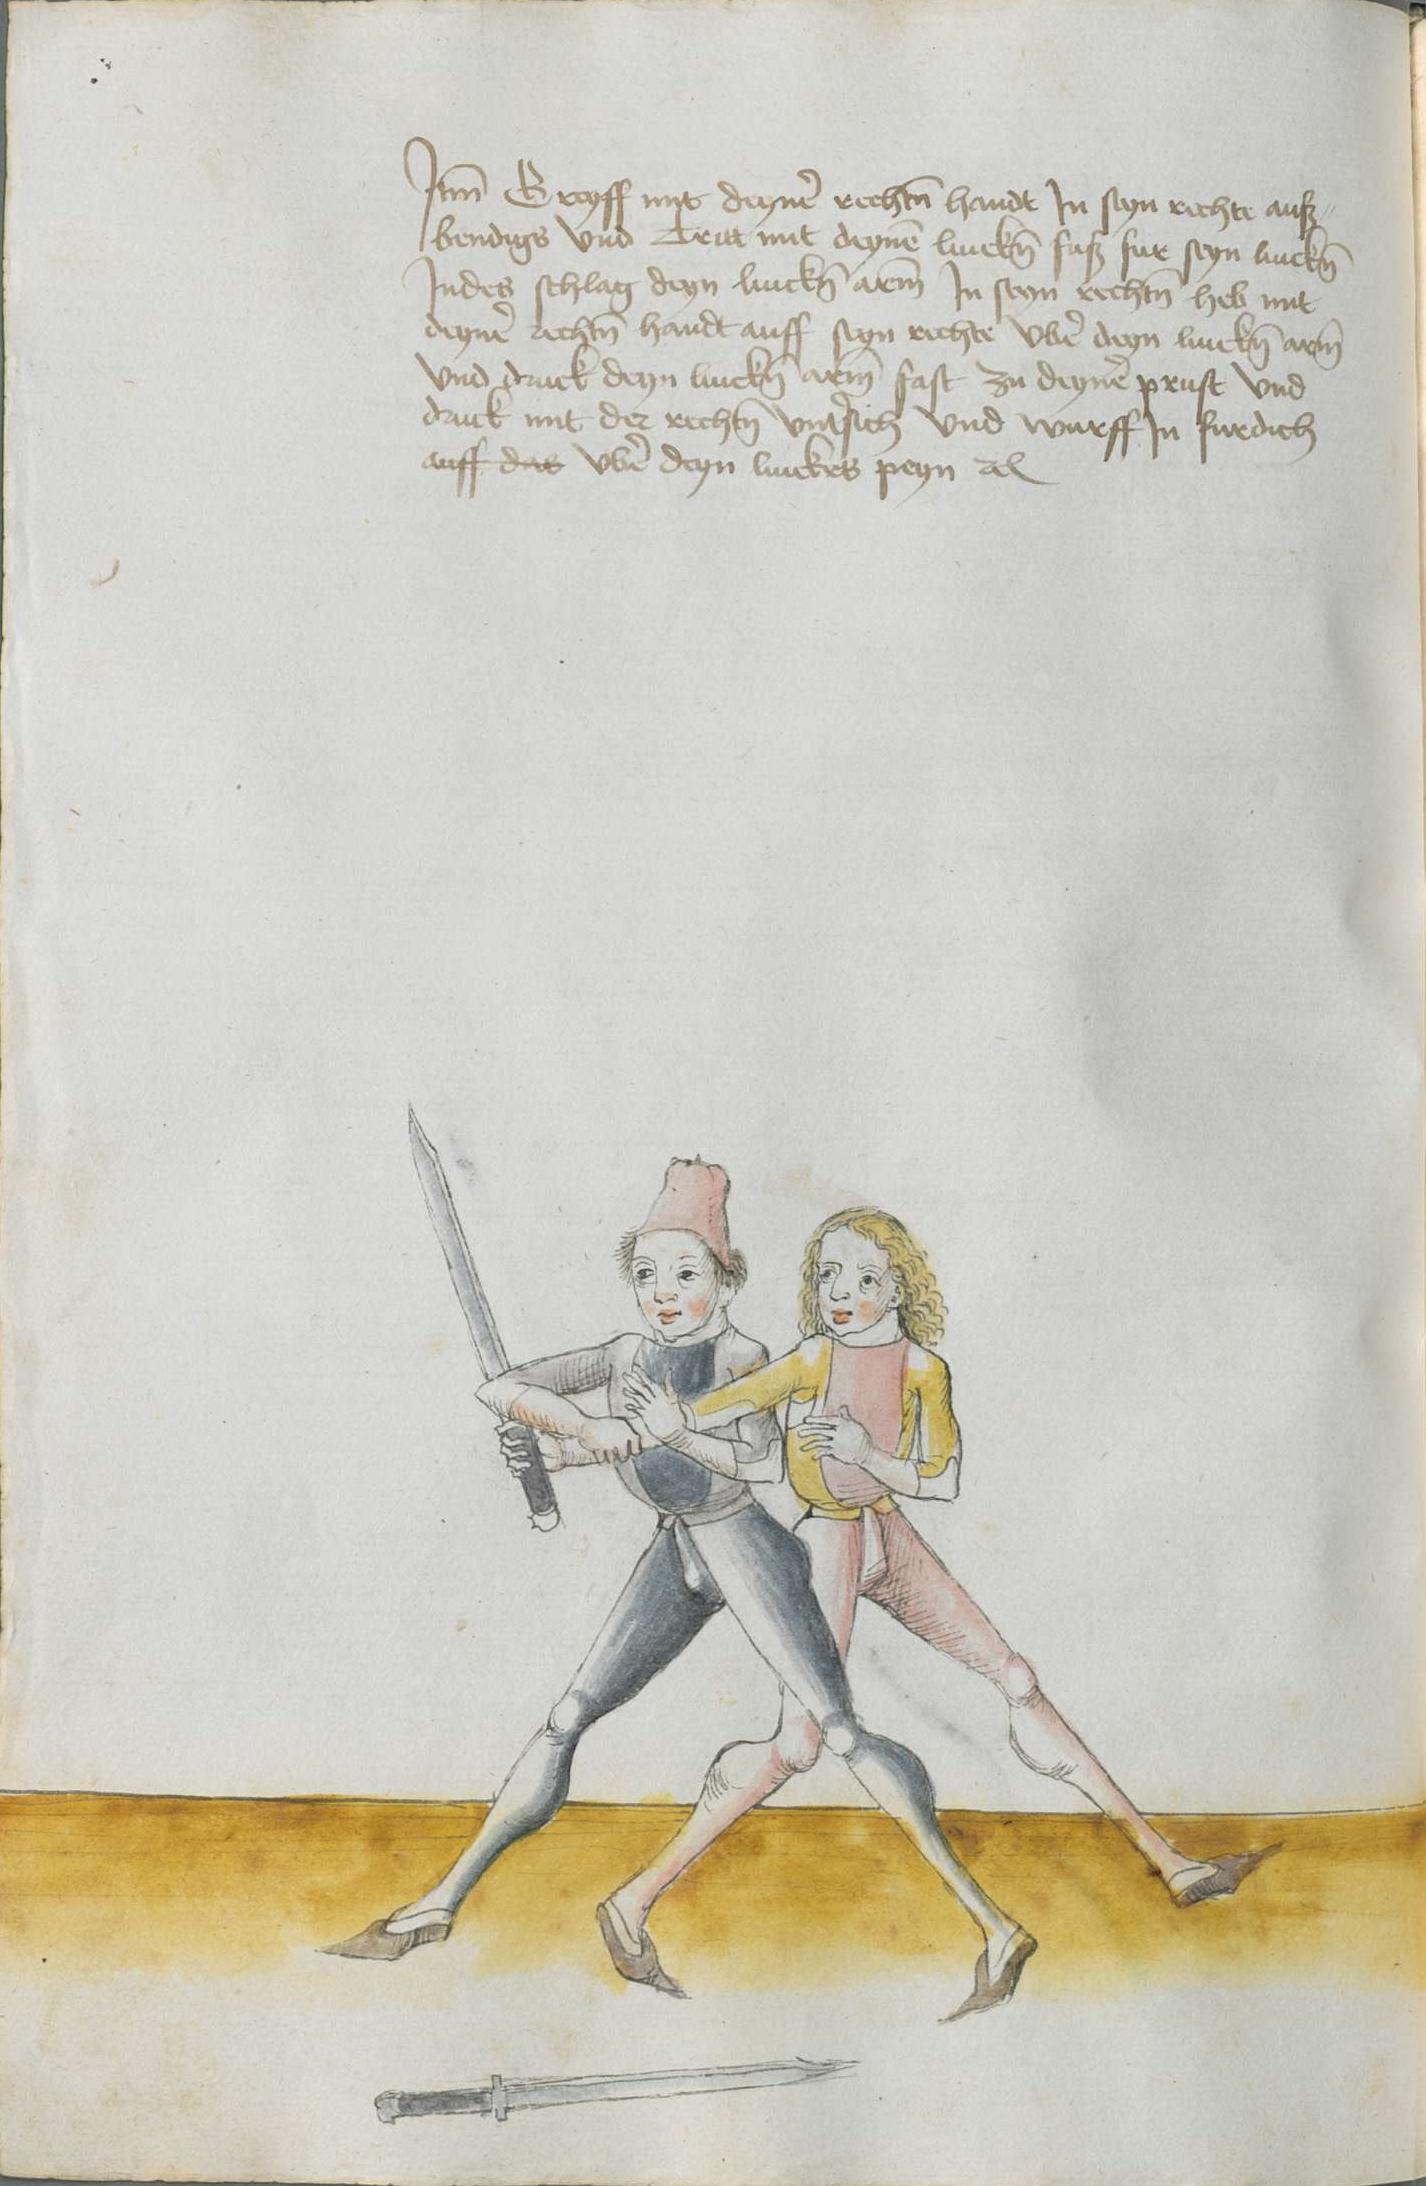 Itm̄ Greyff mit deyne᷑ rechtn̄ handt In seyn rechte ausz〃
bendigs vnd Tritt mit deynē linckn̄ fusz fur seyn linckn̄
Indes schlag deyn linckn̄ arm̄ In seyn rechtn̄ heb mit
deyne᷑ rechtn̄ handt auff seyn rechte vbe᷑ deyn linckn̄ arm̄
vnd druck deyn linckn̄ arm̄ fast zu deyne᷑ prust vnd
druck mit der rechtn̄ vnt᷑sich vnd wurff In furdich
auff das vbe᷑ deyn linckes peyn